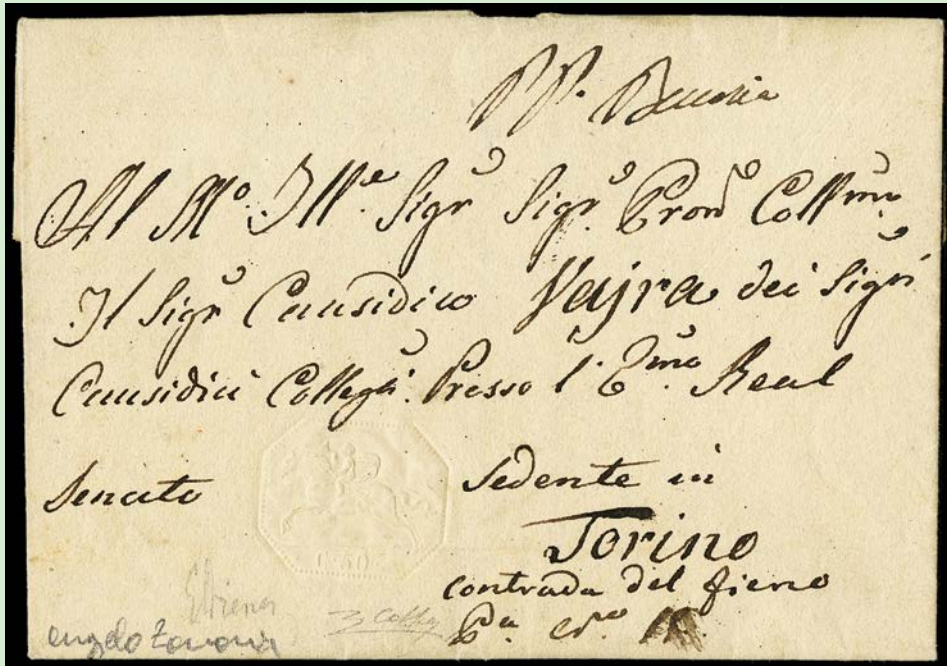 P.P.
Al M.º Ill.e Sigr Sigr Pron Coll.mo
Il Sigr Causidico Vajra dei Sigri
Causidici Colleg.i Presso l'E.mo Real
Senato Sedente in
Torino
contrada del fieno
P.a
0,50